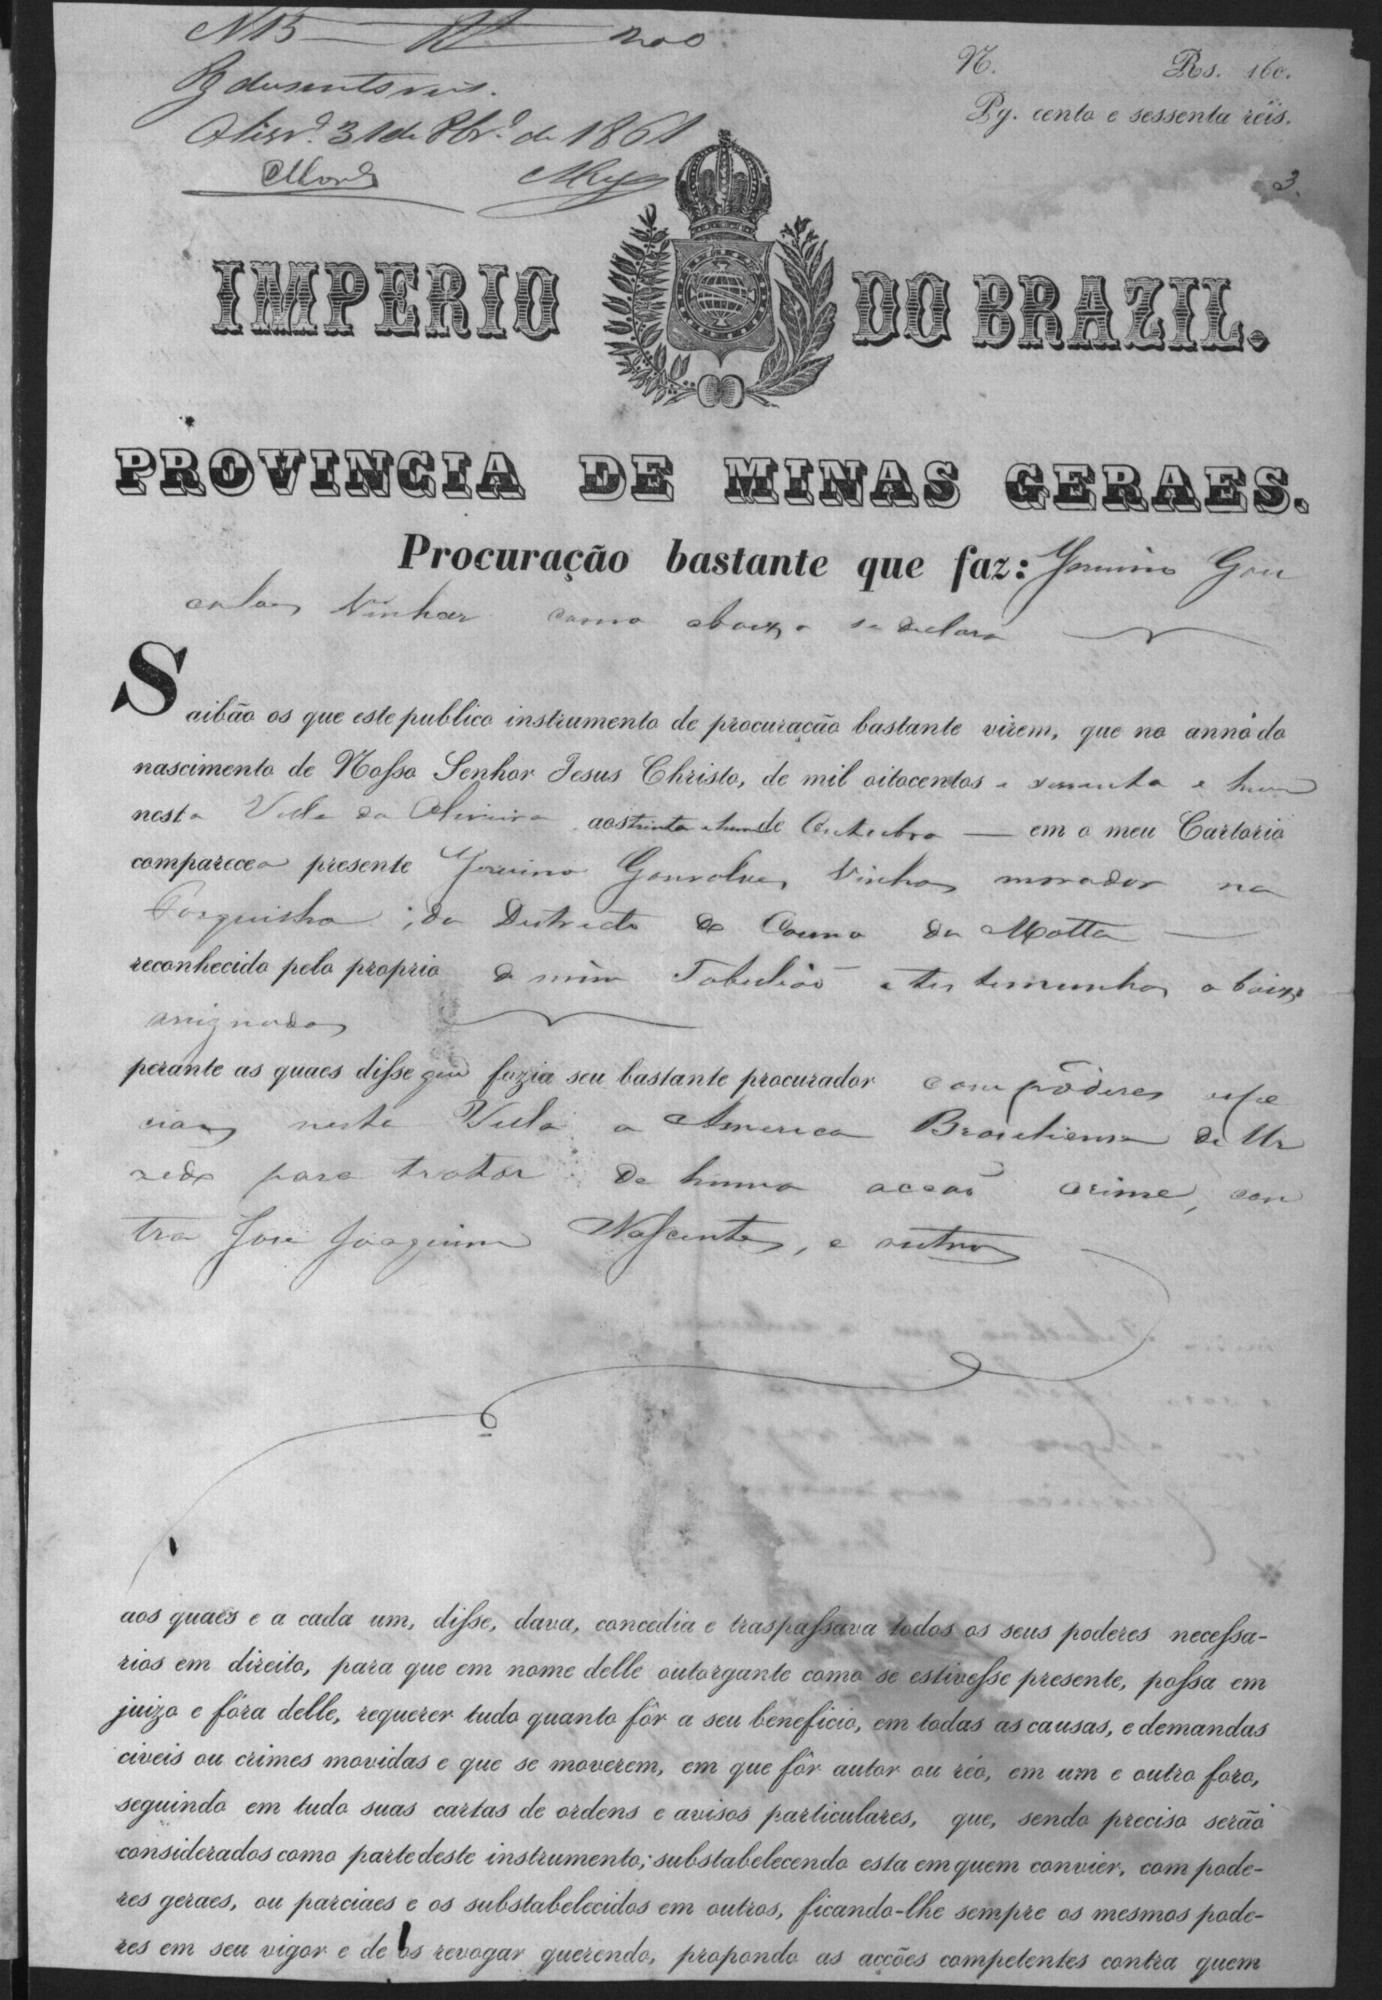 N 15 — Rs 200
Pg dusentos reis.
Olivr.ª 31 de 8br.º de 1861
N. Rs. 160.
Pg. cento e sessenta réis.
3.
IMPERIO DO BRAZIL.
PROVINCIA DE MINAS GERAES.
Procuração bastante que faz: Gon
calves Vinhas como abaixo se declara
Saibão os que este publico instrumento de procuração bastante virem, que no anno do
nascimento de Nosso Senhor Jesus Christo, de mil oitocentos e sessenta e hum
nesta Villa da Oliveira aos trinta e hum de Outubro — em o meu Cartorio
compareceo presente Gonsalves Vinhas morador na
Forquinha, do Districto do Carmo da Motta —
reconhecido pelo proprio de mim Tabelião e testemunhas abaixo
assignadas
perante as quaes disse que fazia seu bastante procurador com pôderes espe
ciaes nesta Villa a America Brasiliense de Ur
zedo para tratar de huma acção crime, con
tra José Joaquim Nascentes, e outros
aos quaes e a cada um, disse, dava, concedia e traspassava todos os seus poderes necessa-
rios em direito, para que em nome delle outorgante como se estivesse presente, possa em
juizo e fóra delle, requerer tudo quanto fôr a seu beneficio, em todas as causas, e demandas
civeis ou crimes movidas e que se moverem, em que fôr autor ou réo, em um e outro foro,
seguindo em tudo suas cartas de ordens e avisos particulares, que, sendo preciso serão
considerados como parte deste instrumento; substabelecendo esta em quem convier, com pode-
res geraes, ou parciaes e os substabelecidos em outros, ficando-lhe sempre os mesmos pode-
res em seu vigor e de os revogar querendo, propondo as acções competentes contra quem